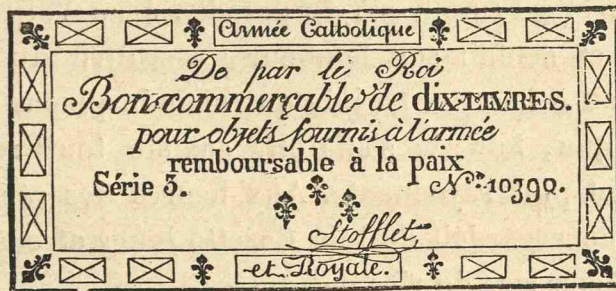 Armée Catholique
De par le Roi
Bon commerçable de DIX LIVRES.
pour objets fournis à l'armée
remboursable à la paix
Série 3. N.º 10398.
Stofflet,
et Royale.